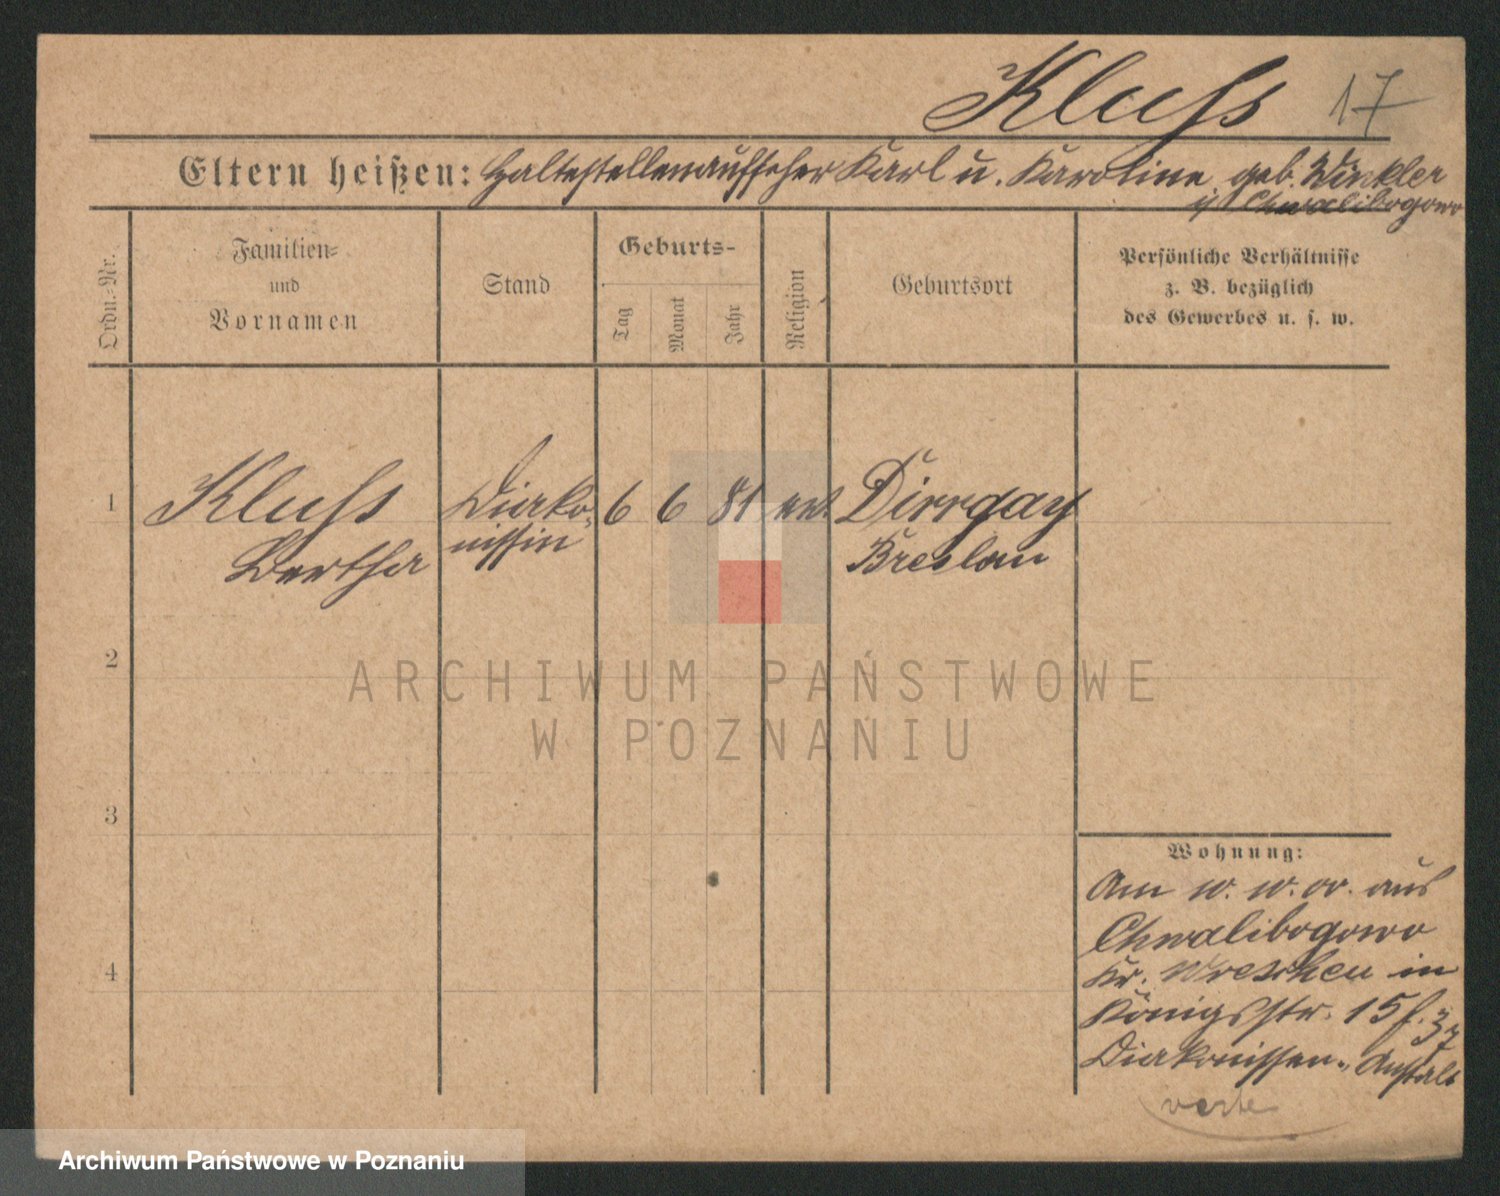 Kluss 17
Eltern heißen: Haltestellenaufseher Karl u. Karoline geb. Winkler
Chwalibogowo
Ordn.-Nr.
Familien-
und
Vornamen
Stand
Geburts-
Tag
Monat
Jahr
Religion
Geburtsort
Persönliche Verhältnisse
z. B. bezüglich
des Gewerbes u. s. w.
1 Kluss Diako- 6 6 81 Dirrgay
Bertha nissin Breslau
2
3
4
Wohnung:
Am aus
Chwalibogowo
Kr. Wreschen in
Königsstr. 15
Diakonissen-Anstalt
verte
ARCHIWUM PAŃSTWOWE
W POZNANIU
Archiwum Państwowe w Poznaniu